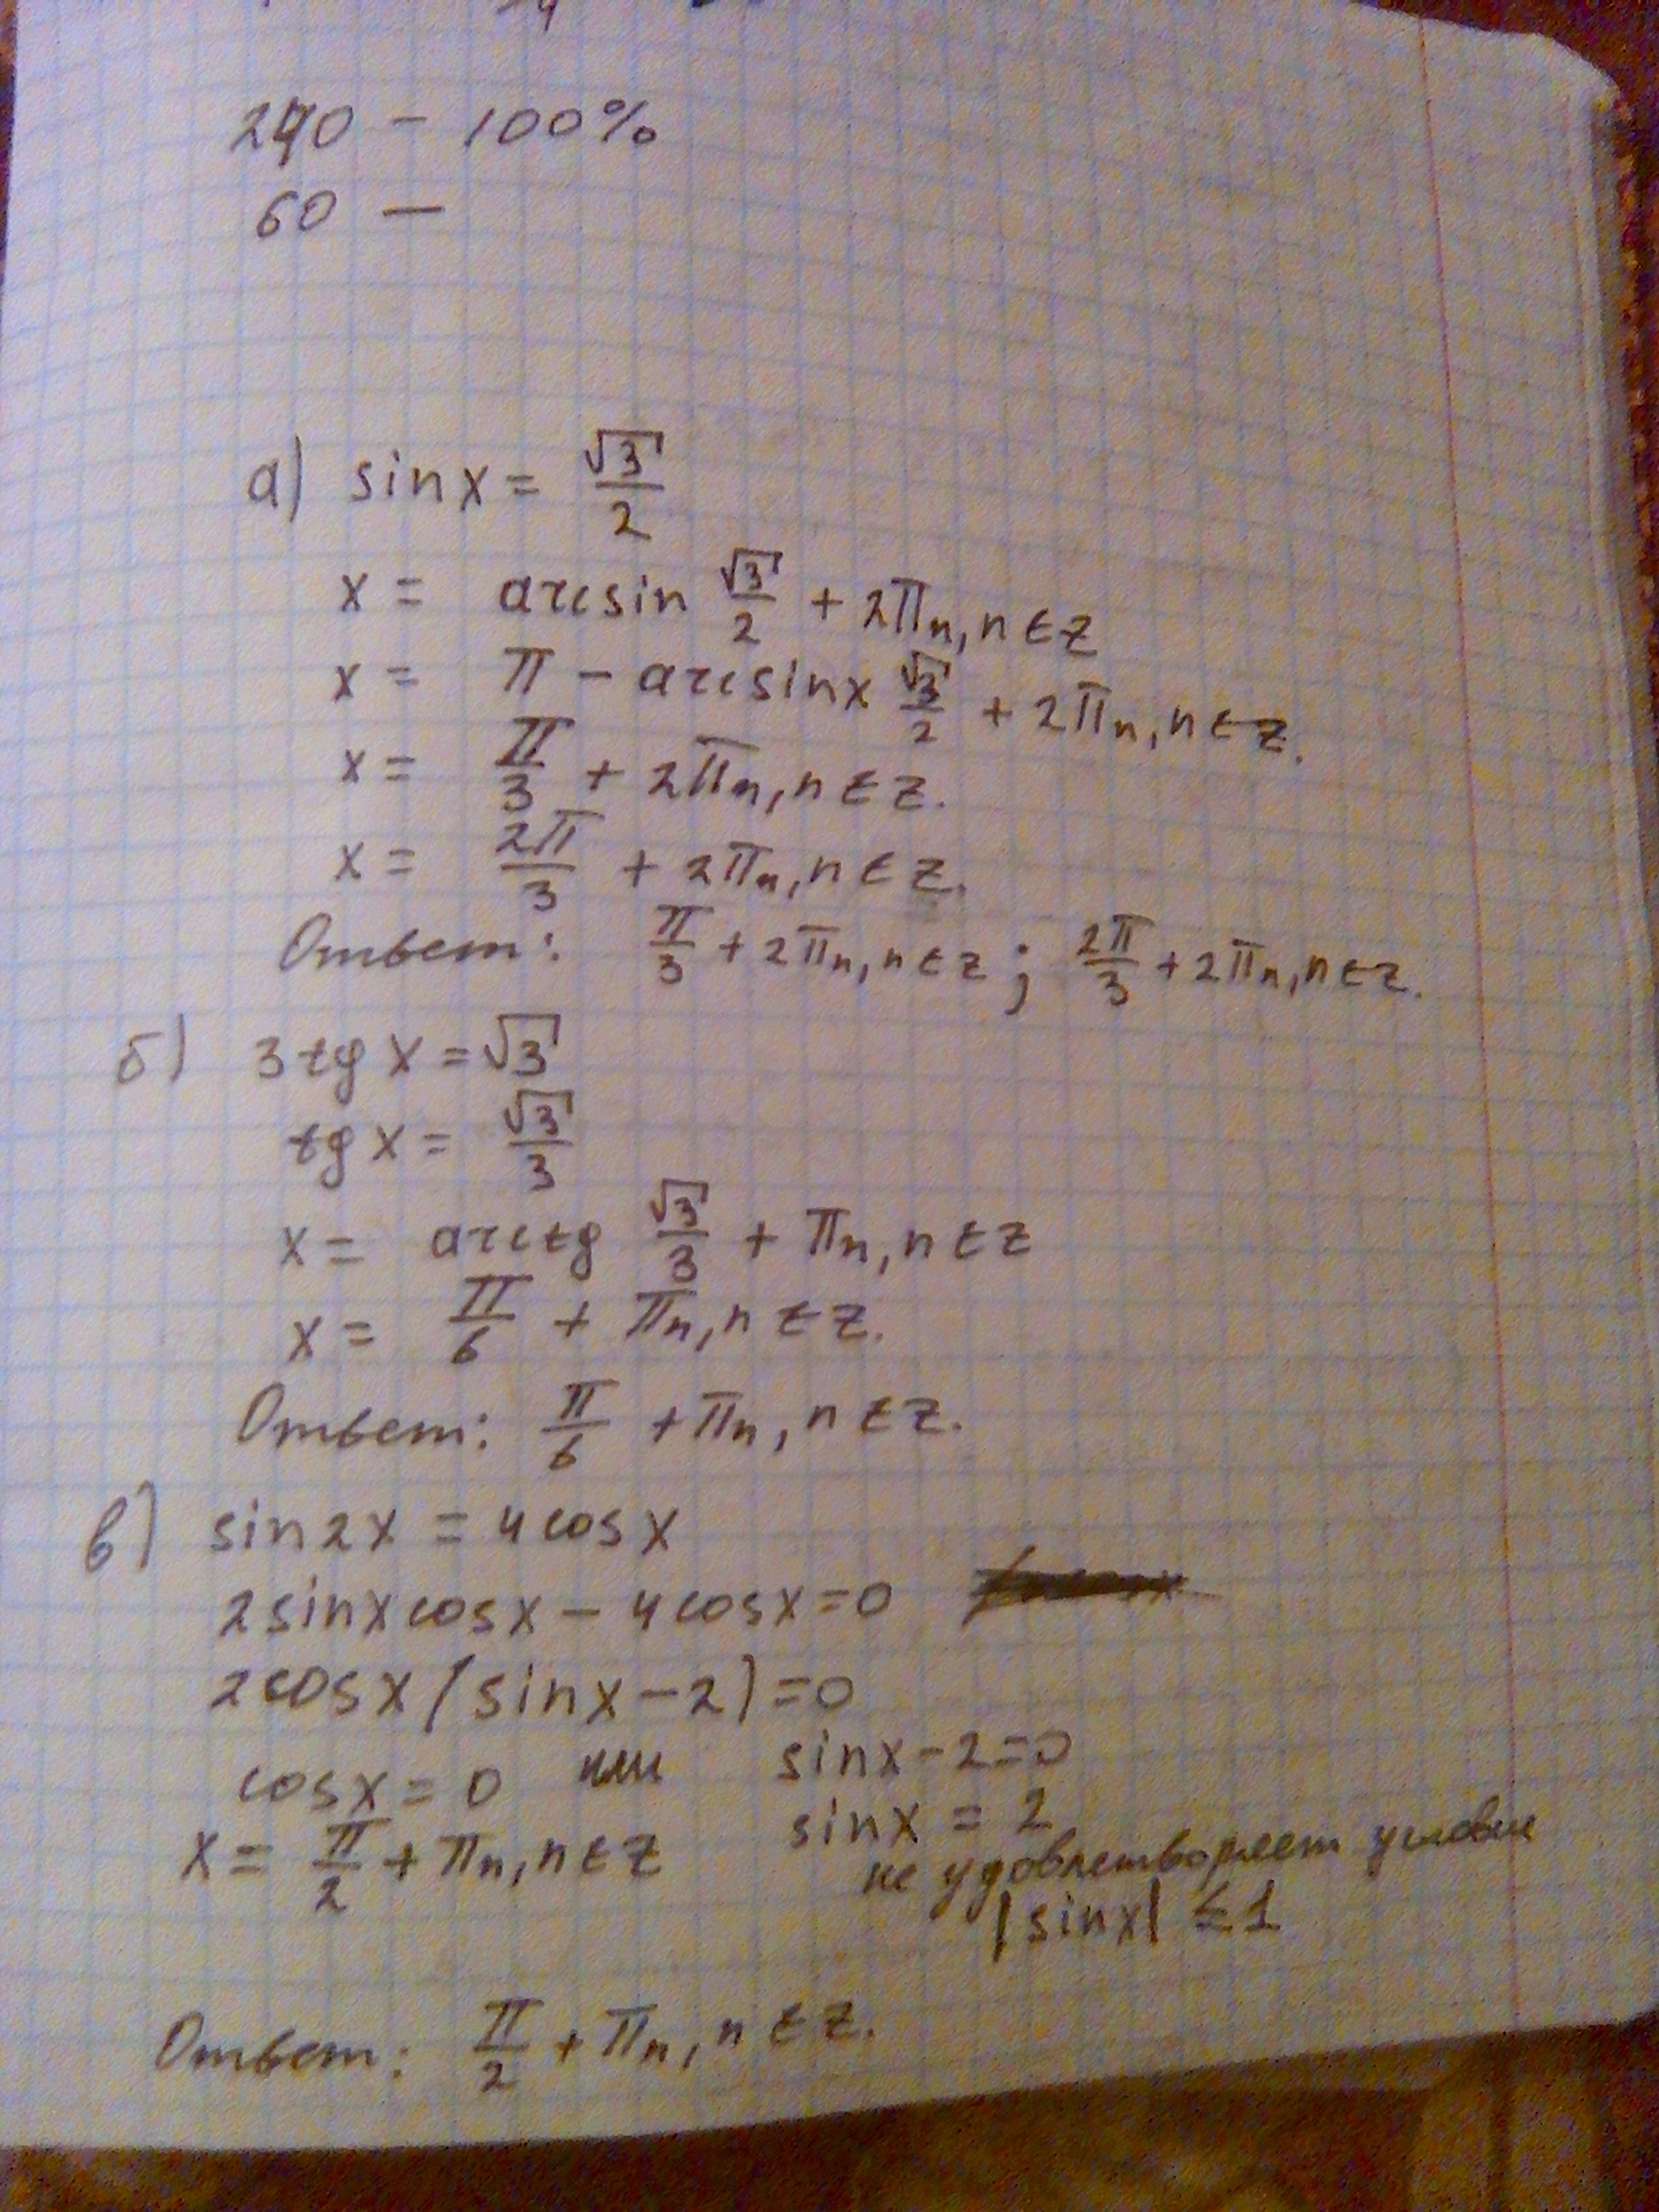 240 - 100%
60 -
а) sinx = √3/2
x = arcsin √3/2 + 2πn, n∈z
x = π - arcsinx √3/2 + 2πn, n∈z.
x = π/3 + 2πn, n∈z.
x = 2π/3 + 2πn, n∈z.
Ответ: π/3 + 2πn, n∈z ; 2π/3 + 2πn, n∈z.
б) 3tgx = √3
tgx = √3/3
x = arctg √3/3 + πn, n∈z
x = π/6 + πn, n∈z.
Ответ: π/6 + πn, n∈z.
в) sin2x = 4cosx
2sinxcosx - 4cosx = 0
2cosx(sinx - 2) = 0
cosx = 0 или sinx - 2 = 0
x = π/2 + πn, n∈z sinx = 2
не удовлетворяет условие
|sinx| ≤ 1
Ответ: π/2 + πn, n∈z.